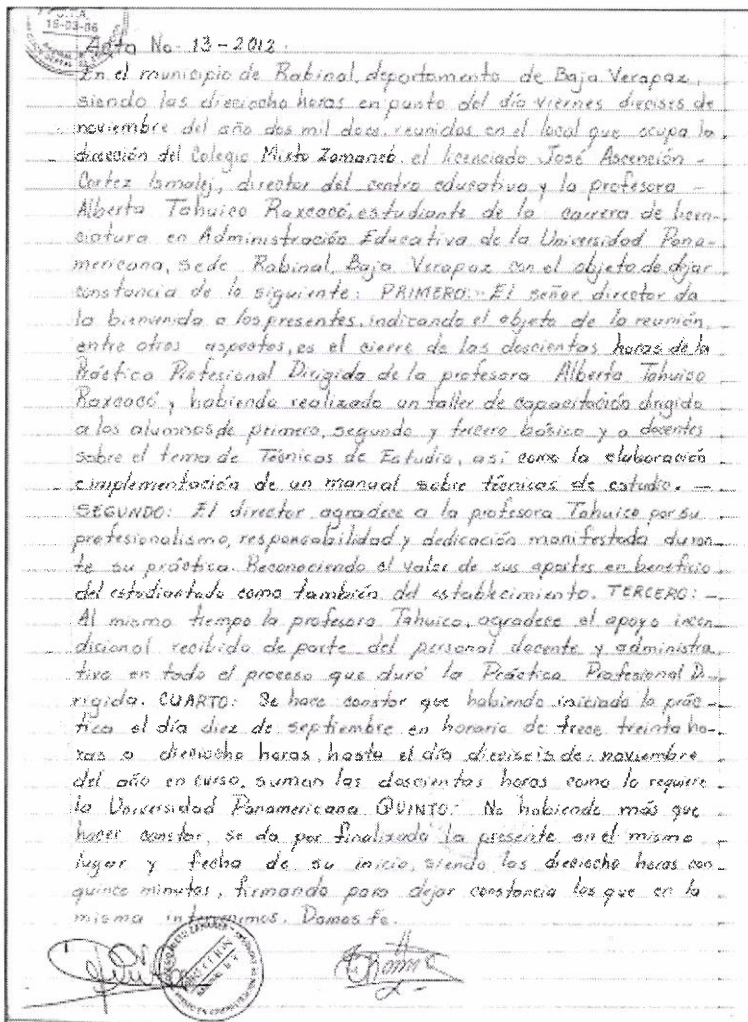 16-03-06
Acta No. 13-2012.
En el municipio de Rabinal, departamento de Baja Verapaz,
siendo las dieciocho horas en punto del día viernes dieciseis de
noviembre del año dos mil doce, reunidos en el local que ocupa la
dirección del Colegio Mixto Zamaneb, el licenciado José Ascención -
Cortez Ismalej, director del centro educativo y la profesora -
Alberta Tahuico Raxcacó, estudiante de la carrera de licen-
ciatura en Administración Educativa de la Universidad Pana-
mericana, sede Rabinal, Baja Verapaz con el objeto de dejar
constancia de lo siguiente: PRIMERO:- El señor director da
la bienvenida a los presentes, indicando el objeto de la reunión,
entre otros aspectos, es el cierre de las doscientas horas de la
Práctica Profesional Dirigida de la profesora Alberta Tahuico
Raxcacó, habiendo realizado un taller de capacitación dirigido
a los alumnos de primero, segundo y tercero básico y a docentes
sobre el tema de Técnicas de Estudio, así como la elaboración
e implementación de un manual sobre técnicas de estudio. -
SEGUNDO: El director agradece a la profesora Tahuico por su
profesionalismo, responsabilidad y dedicación manifestada duran-
te su práctica. Reconociendo el valor de sus aportes en beneficio
del estudiantado como también del establecimiento. TERCERO: -
Al mismo tiempo la profesora Tahuico, agradece el apoyo incon-
dicional recibido de parte del personal docente y administra-
tivo en todo el proceso que duró la Práctica Profesional Di-
rigida. CUARTO: Se hace constar que habiendo iniciado la prác-
tica el día diez de septiembre en horario de trece treinta ho-
ras a dieciocho horas, hasta el día dieciseis de noviembre
del año en curso, suman las doscientas horas como lo requiere
la Universidad Panamericana QUINTO: No habiendo más que
hacer constar, se da por finalizada la presente en el mismo
lugar y fecha de su inicio, siendo las dieciocho horas con
quince minutos, firmando para dejar constancia los que en la
misma intervenimos. Damos fe.